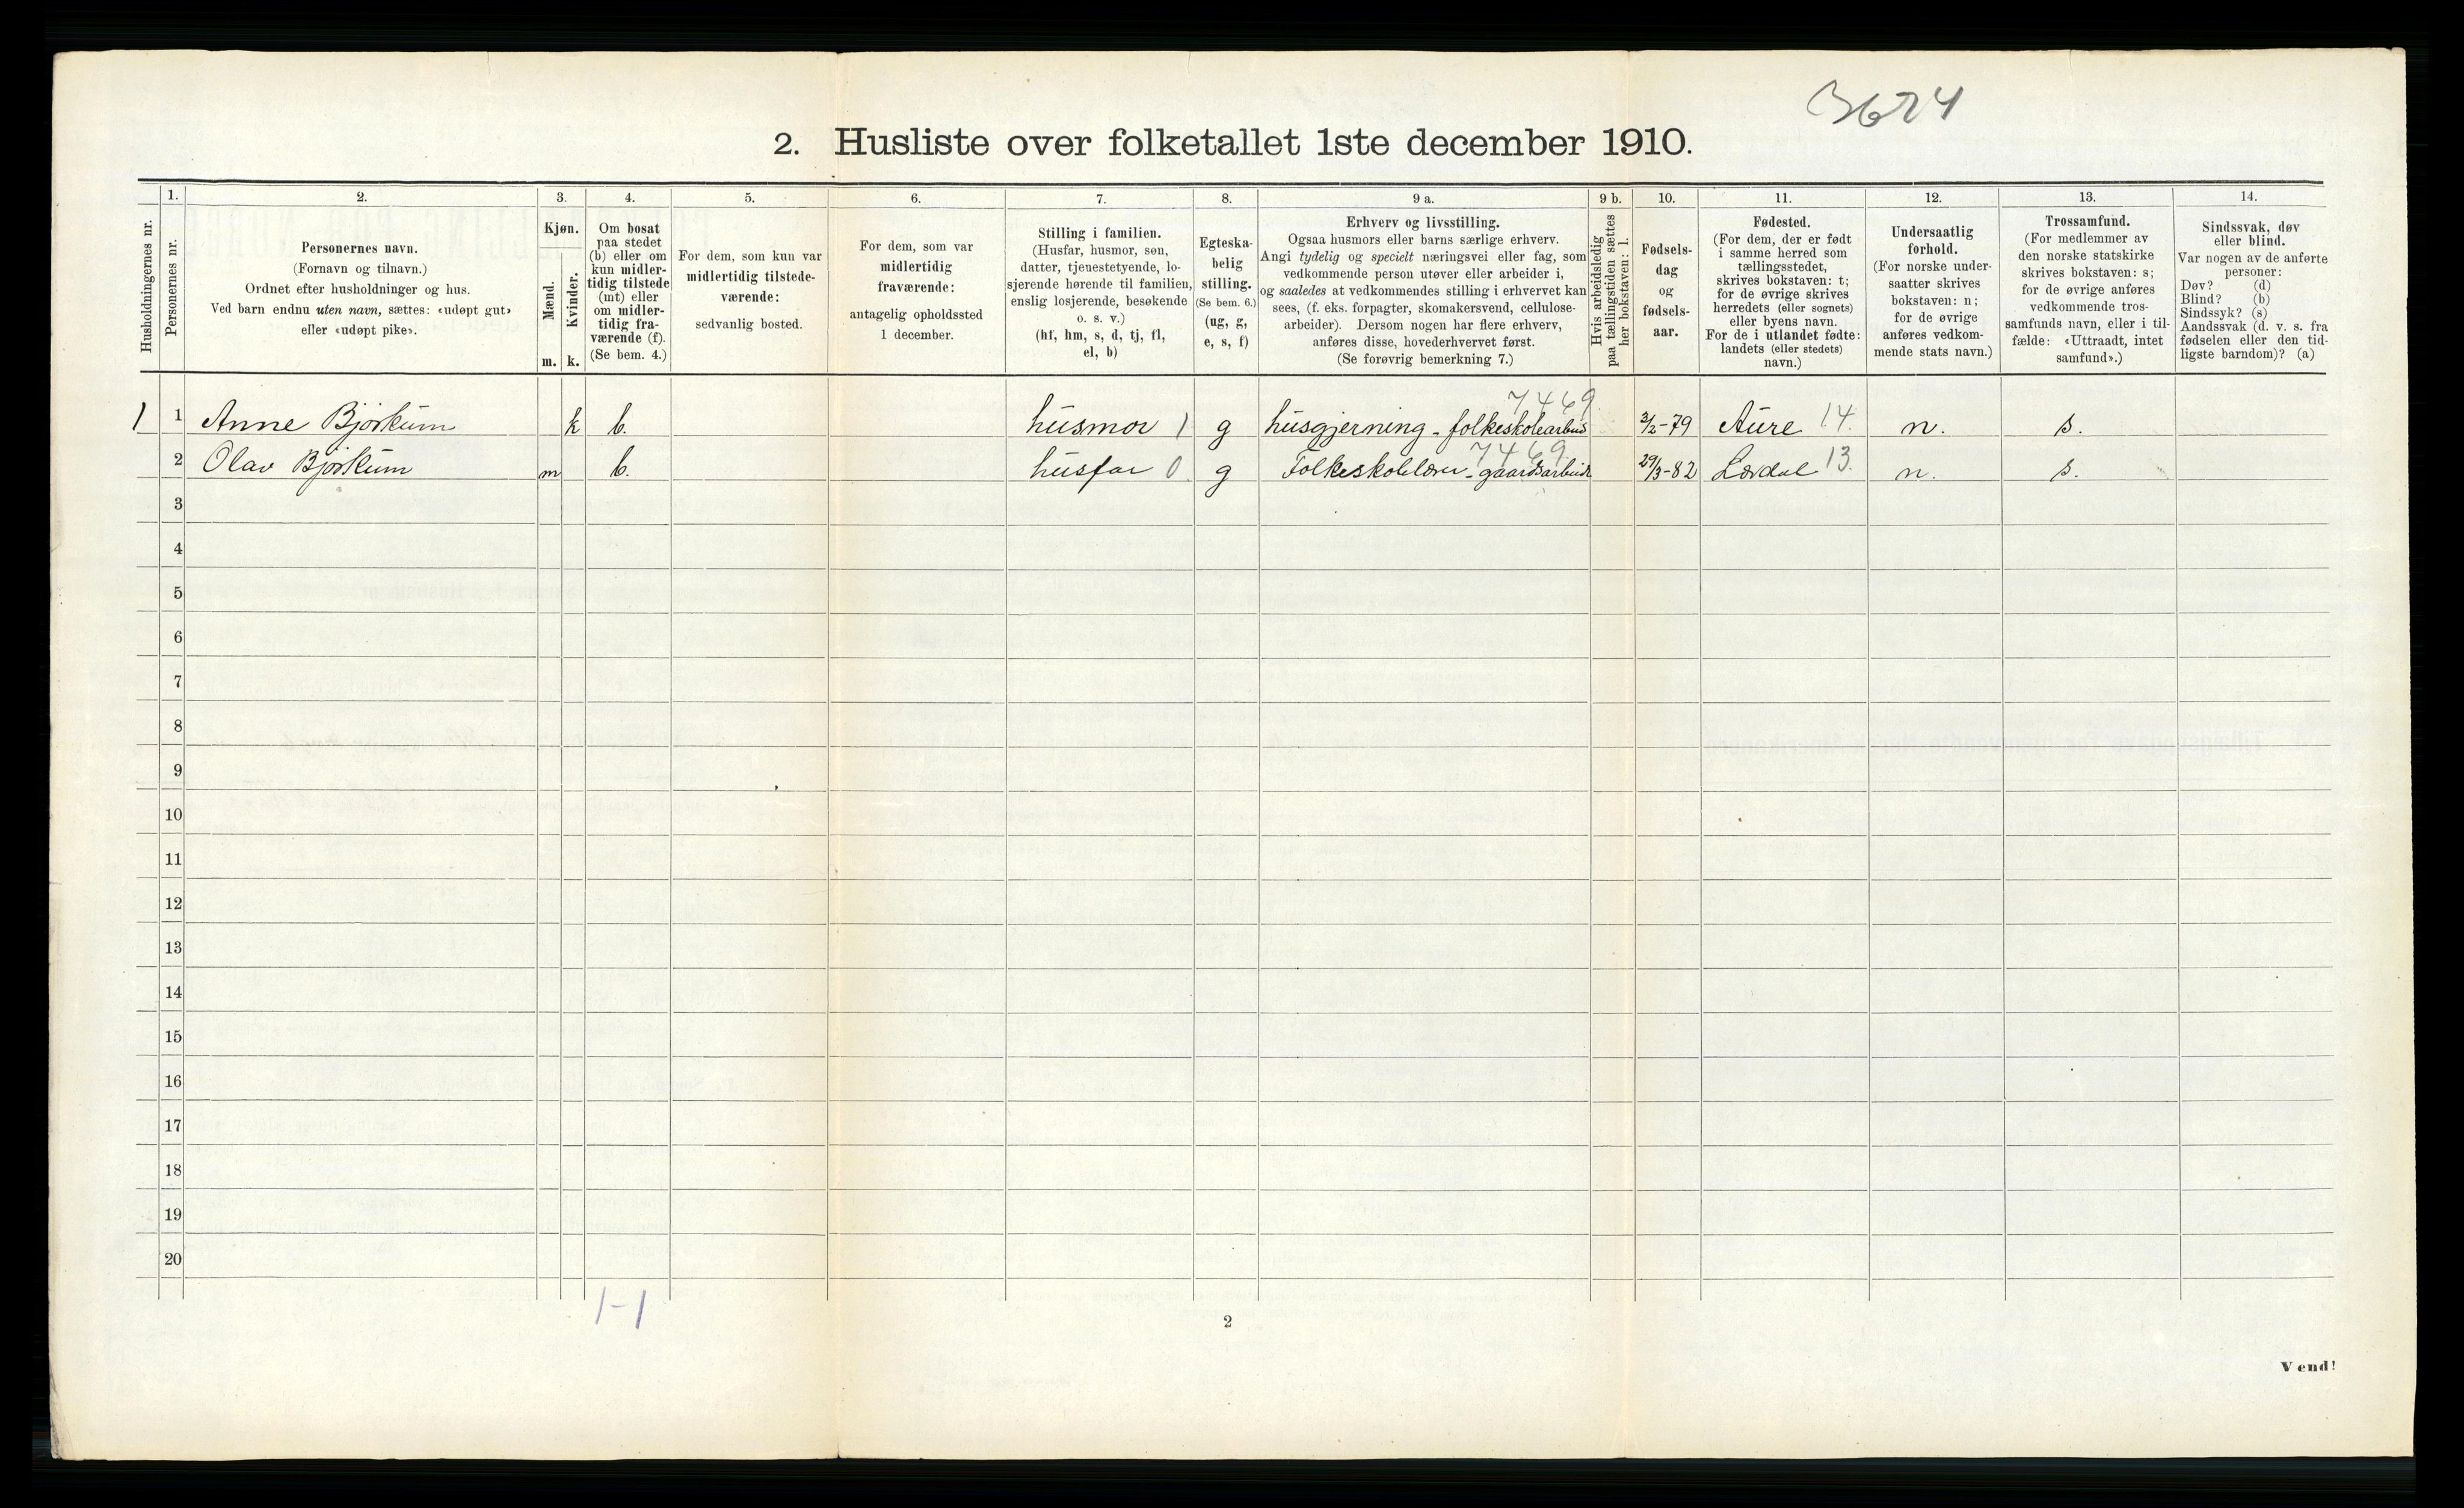 3624
2. Husliste over folketallet 1ste december 1910.
Husholdningernes nr.
1.
Personernes nr.
2.
Personernes navn.
(Fornavn og tilnavn.)
Ordnet efter husholdninger og hus.
Ved barn endnu uten navn, sættes: «udøpt gut»
eller «udøpt pike».
3.
Kjøn.
Mænd.
Kvinder.
m. k.
4.
Om bosat
paa stedet
(b) eller om
kun midler-
tidig tilstede
(mt) eller
om midler-
tidig fra-
værende (f).
(Se bem. 4.)
5.
For dem, som kun var
midlertidig tilstede-
værende:
sedvanlig bosted.
6.
For dem, som var
midlertidig
fraværende:
antagelig opholdssted
1 december.
7.
Stilling i familien.
(Husfar, husmor, søn,
datter, tjenestetyende, lo-
sjerende hørende til familien,
enslig losjerende, besøkende
o. s. v.)
(hf, hm, s, d, tj, fl,
el, b)
8.
Egteska-
belig
stilling.
(Se bem. 6.)
(ug, g,
e, s, f)
9 a.
Erhverv og livsstilling.
Ogsaa husmors eller barns særlige erhverv.
Angi tydelig og specielt næringsvei eller fag, som
vedkommende person utøver eller arbeider i,
og saaledes at vedkommendes stilling i erhvervet kan
sees, (f. eks. forpagter, skomakersvend, cellulose-
arbeider). Dersom nogen har flere erhverv,
anføres disse, hovederhvervet først.
(Se forøvrig bemerkning 7.)
9 b.
Hvis arbeidsledig
paa tællingstiden sættes
her bokstaven: l.
10.
Fødsels-
dag
og
fødsels-
aar.
11.
Fødested.
(For dem, der er født
i samme herred som
tællingsstedet,
skrives bokstaven: t;
for de øvrige skrives
herredets (eller sognets)
eller byens navn.
For de i utlandet fødte:
landets (eller stedets)
navn.)
12.
Undersaatlig
forhold.
(For norske under-
saatter skrives
bokstaven: n;
for de øvrige
anføres vedkom-
mende stats navn.)
13.
Trossamfund.
(For medlemmer av
den norske statskirke
skrives bokstaven: s;
for de øvrige anføres
vedkommende tros-
samfunds navn, eller i til-
fælde: «Uttraadt, intet
samfund».)
14.
Sindssvak, døv
eller blind.
Var nogen av de anførte
personer:
Døv? (d)
Blind? (b)
Sindssyk? (s)
Aandssvak (d. v. s. fra
fødselen eller den tid-
ligste barndom)? (a)
7469.
1 1 Anne Bjørkum k b. husmor 1 g husgjerning - folkeskolearbeid 3/2-79 Aure 14. n. s.
7469.
2 Olav Bjørkum m b. husfar 0. g Folkeskolelærer - gaardsarbeide 29/3-82 Lærdal 13. n. s.
3
4
5
6
7
8
9
10
11
12
13
14
15
16
17
18
19
20
1-1
2
Vend!